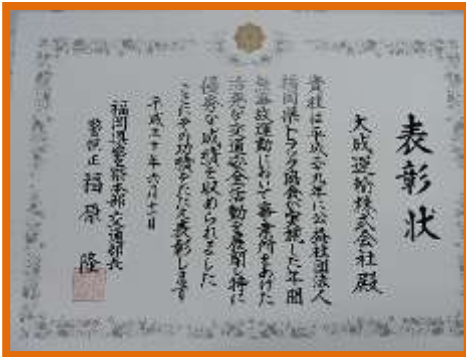 表彰状
大成運輸株式会社殿
貴社は平成二九年に公益社団法人
福岡県トラック協会が実施した年間
無事故運動において事業所をあげた
活発な交通安全活動を展開し特に
優秀な成績を収められました
ことにその功績をたたえ表彰します
平成三十年六月十一日
福岡県警察本部交通部長
警視正 福原 隆